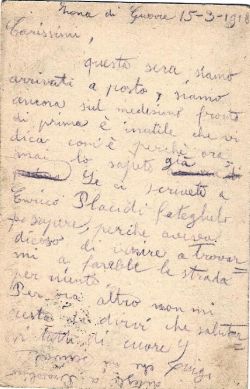 Zona di Guerra 15-3-1918
Carissimi,
questa sera siamo
arrivati a posto, siamo
ancora sul medesimo fronte
di prima è inutile che vi
dica com'è perchè ora
mai lo sapete già
Se ci scrivete a
Enrico Placidi fateglielo
sapere, perchè aveva
di venire a trovar
mi a farebbe la strada
per niente
Per ora altro non mi
resta di dirvi che salutar
vi tutti di cuore
Luigi